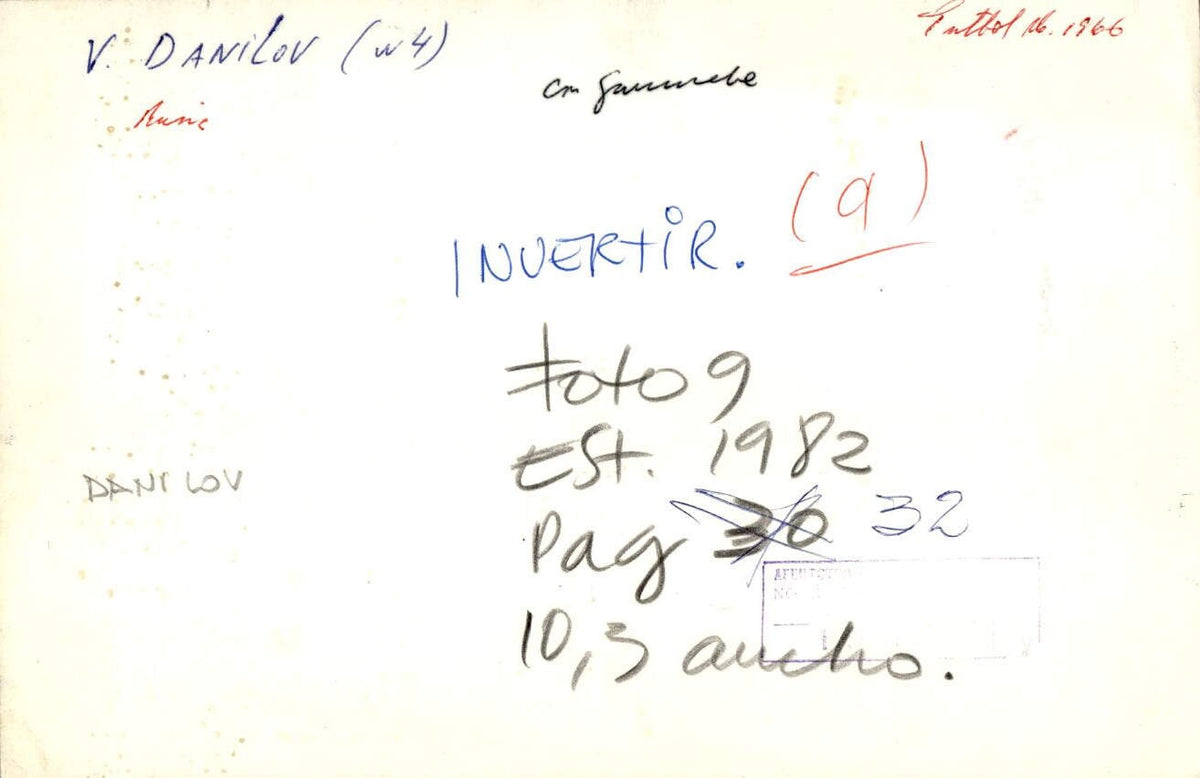 V. DANILOV (nº 4)
Futbol 1966
Rusia
con Garrincha
INVERTIR. (9)
Foto 9
Est. 1982
DANILOV
Pag 30 32
10,3 ancho.